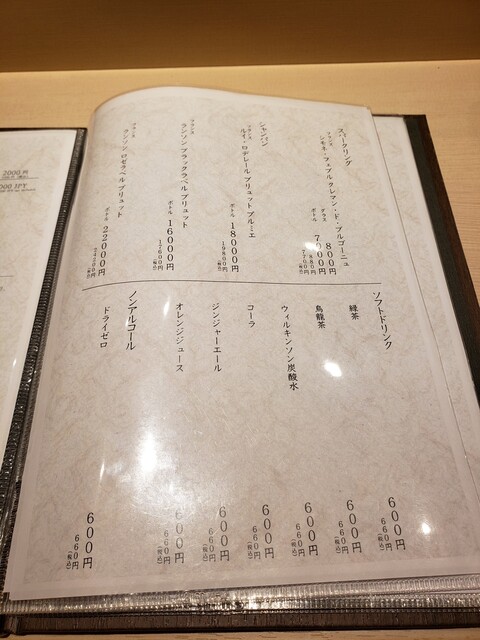 スパークリング
フランス
シモネ・フェブル クレマン・ド・ブルゴーニュ
グラス 800円
880円(税込)
ボトル 7000円
7700円(税込)
シャンパン
フランス
ルイ・ロデレール ブリュット プルミエ
ボトル 18000円
19800円(税込)
フランス
ランソン ブラックラベル ブリュット
ボトル 16000円
17600円(税込)
フランス
ランソン ロゼラベル ブリュット
ボトル 22000円
24200円(税込)
ソフトドリンク
緑茶
600円
660円(税込)
烏龍茶
600円
660円(税込)
ウィルキンソン炭酸水
600円
660円(税込)
コーラ
600円
660円(税込)
ジンジャーエール
600円
660円(税込)
オレンジジュース
600円
660円(税込)
ノンアルコール
ドライゼロ
600円
660円(税込)
2000円
000 JPY